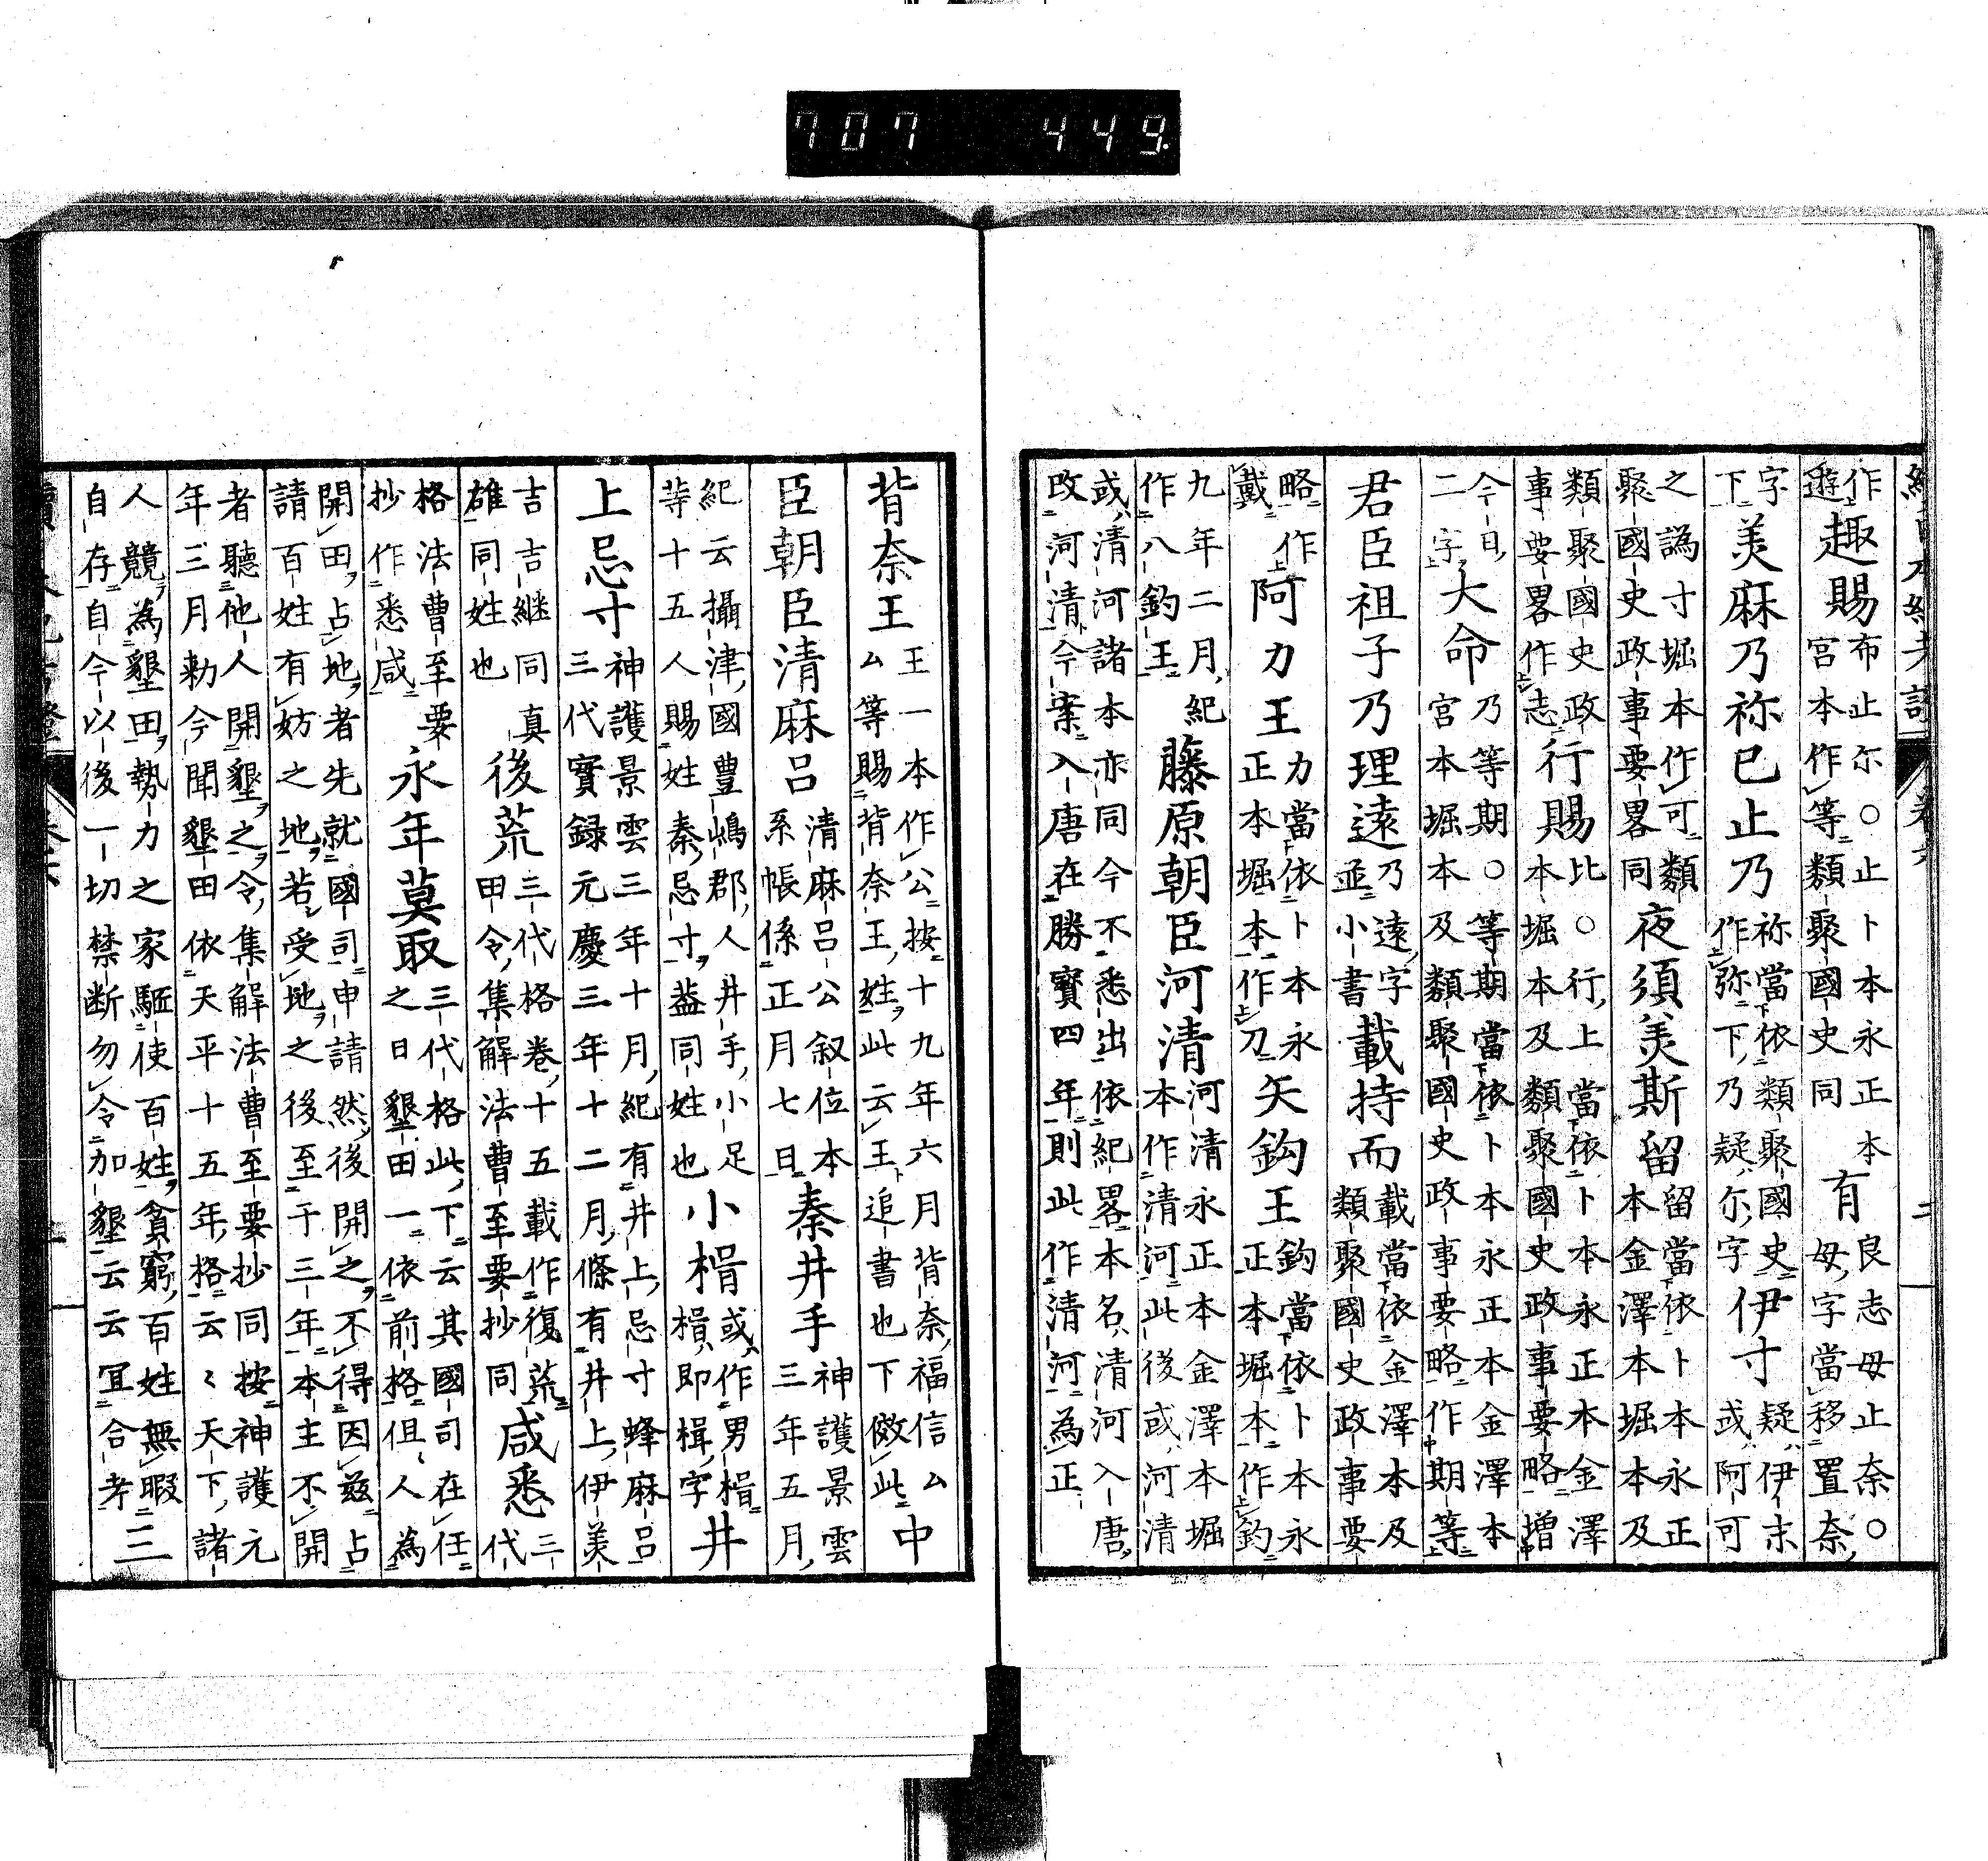 707 449.
續日本紀考證 卷六 二
作遊趣賜布止尓○止卜本永正本宮本作等類聚國史同有良志母止奈○母字當移置奈
字下美麻乃祢已止乃祢當依類聚國史作弥下乃疑尓字伊寸疑伊末或阿可
之譌寸堀本作可類聚國史政事要畧同夜須美斯留留當依卜本永正本金澤本堀本及
類聚國史政事要畧作志行賜比○行上當依卜本永正本金澤本堀本及類聚國史政事要略增
今日二字大命乃等期○等期當依卜本永正本金澤本宮本堀本及類聚國史政事要略作期等
君臣祖子乃理遠乃遠字並小書載持而載當依金澤本及類聚國史政事要
略作戴阿力王力當依卜本永正本堀本作刀矢鈎王鈎當依卜本永正本堀本作釣
九年二月紀作八釣王藤原朝臣河清河清永正本金澤本堀本作清河此後或河清
或清河諸本亦同今不悉出依紀畧本名清河入唐改河清今案入唐在勝寶四年則此作清河為正
背奈王王一本作公按十九年六月背奈福信公等賜背奈王姓此云王追書也下倣此中
臣朝臣清麻呂清麻呂公叙位本系帳係正月七日秦井手神護景雲三年五月
紀云攝津國豊嶋郡人井手小足等十五人賜姓秦忌寸葢同姓也小楫或作男楫楫即楫字井
上忌寸神護景雲三年十月紀有井上忌寸蜂麻呂三代實録元慶三年十二月條有井上伊美
吉吉継同真雄同姓也後荒三代格卷十五載作復荒田令集解法曹至要抄同咸悉三代
格法曹至要抄作悉咸永年莫取三代格此下云其國司在任之日墾田一依前格但人為
開田占地者先就國司申請然後開之不得因茲占請百姓有妨之地若受地之後至于三年本主不開
者聽他人開墾之令集解法曹至要抄同按神護元年三月勅今聞墾田依天平十五年格云〻天下諸
人競為墾田勢力之家駈使百姓貧窮百姓無暇自存自今以後一切禁断勿令加墾云云宜合考 三